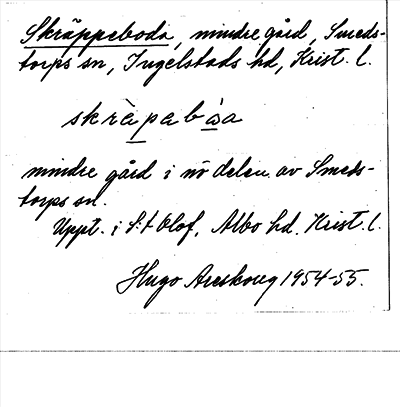 Skräppeboda, mindre gård, Smeds-
torps sn, Ingelstads hd, Krist. l.
skràpabòa
mindre gård i nö delen av Smeds-
torps sn.
Uppt. i S:t Olof, Albo hd. Krist. l.
Hugo Areskoug 1954-55.